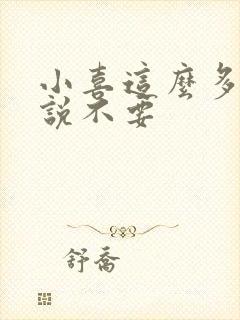 小喜這麼多
說不要
舒喬